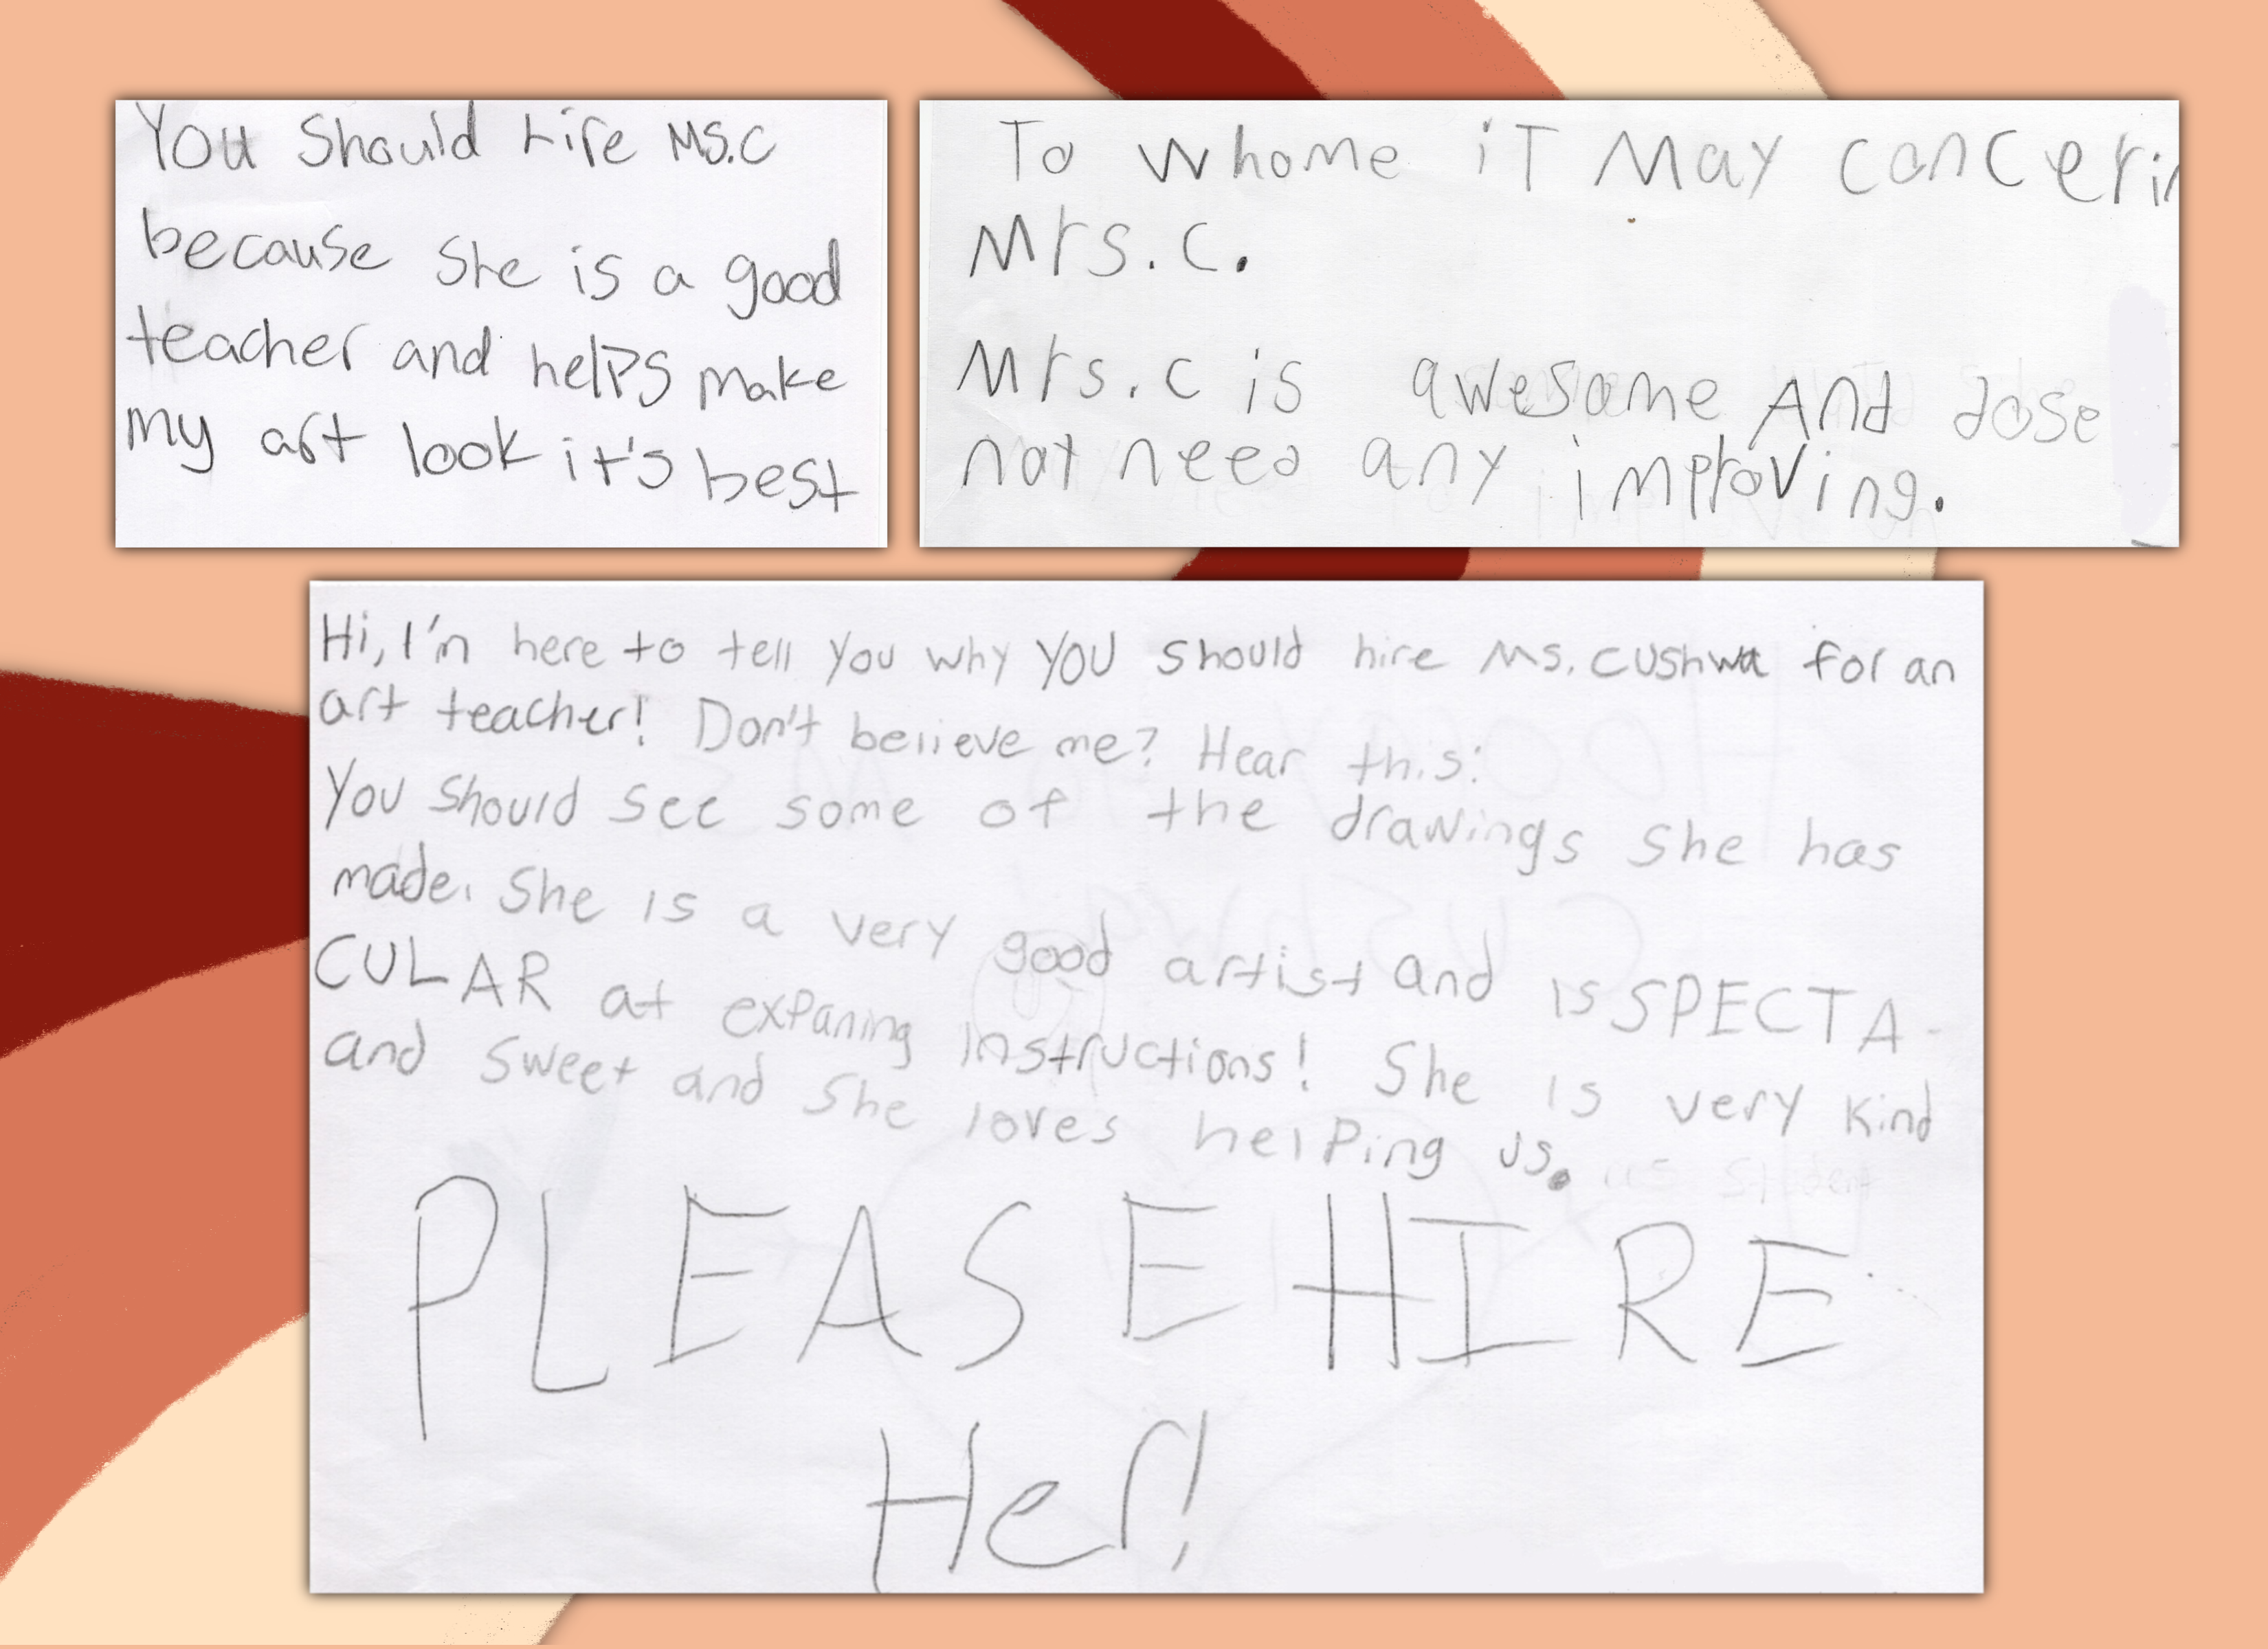 You Should hire MS.C
because She is a good
teacher and helps make
my art look it's best
To whome iT May concerin
Mrs. C.
Mrs. C is awesome And dose
not need any improving.
Hi, I'm here to tell you why YOU should hire Ms. Cushwa for an
art teacher! Don't believe me? Hear this:
You should see some of the drawings she has
made. She is a very good artist and is SPECTA-
CULAR at expaning instructions! She is very kind
and sweet and she loves helping us.
PLEASE HIRE
Her!